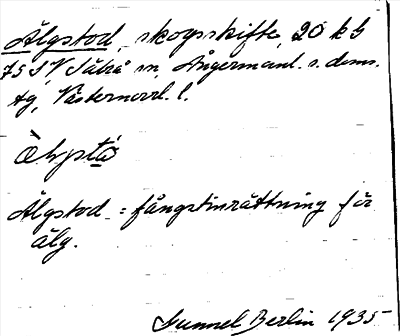 Älgstod, skogsskifte, 20 kb
75 SV Såbrå sn, Ångermanl. s. doms.
tg, Västernorrl. l.
Älgstod = fångstinrättning för
älg.
Gunnel Berlin 1935